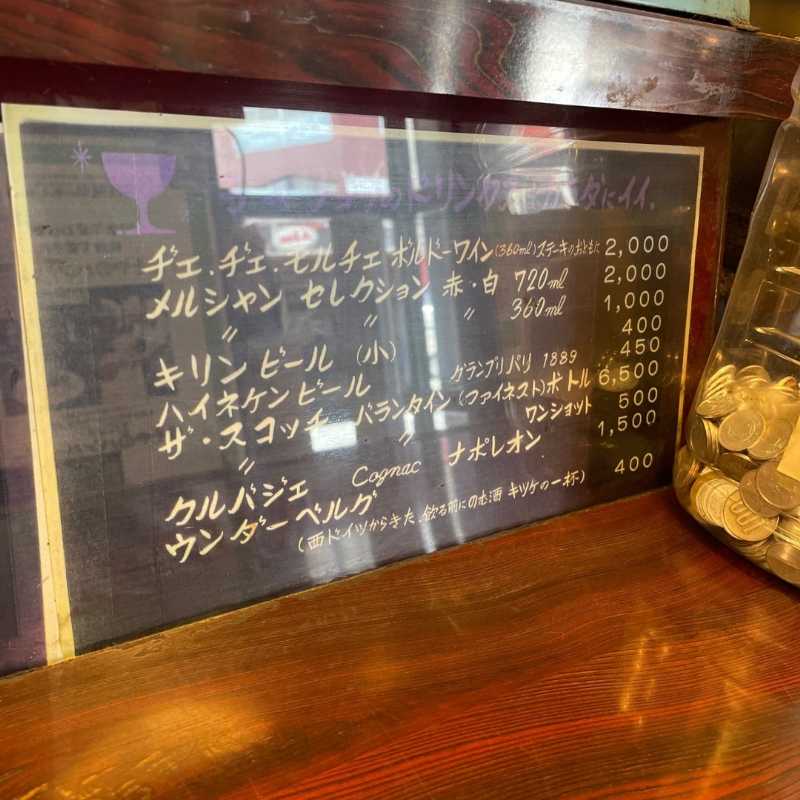 ドリンク カラダにイイ。
ヂェ.ヂェ.モルチェ ボルドーワイン(360ml)ステーキのおともに 2,000
メルシャン セレクション 赤・白 720ml 2,000
〃 〃 〃 360ml 1,000
キリンビール (小) 400
ハイネケンビール 450
ザ・スコッチ バランタイン(ファイネスト)ボトル グランプリパリ 1889 6,500
〃 〃 ワンショット 500
クルバジェ Cognac ナポレオン 1,500
ウンダーベルグ 400
(西ドイツからきた、飲る前にのむ酒 キツケの一杯)